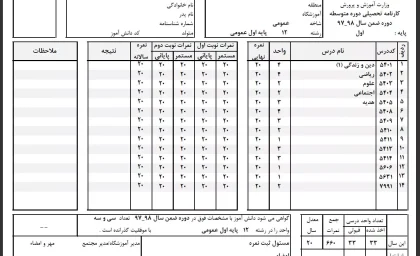 وزارت آموزش و پرورش
کارنامه تحصیلی دوره متوسطه
دوره ضمن سال ۹۸_۹۷
پایه : اول
منطقه
آموزشگاه
شاخه عمومی
رشته ۱۲ پایه اول عمومی
نام خانوادگی
نام پدر
شماره شناسنامه
متولد
کد دانش آموز
ردیف کددرس نام درس واحد نمره نهایی نمرات نوبت اول نمرات نوبت دوم نمره سالانه نتیجه ملاحظات
مستمر پایانی مستمر پایانی
۱ ۵۴۰۱ دین و زندگی (۱) ۴ ۲۰ ۲۰ ۲۰ ۲۰ ۲۰ ۲۰
۲ ۵۴۰۲ ریاضی ۲ ۲۰ ۲۰ ۲۰ ۲۰ ۲۰ ۲۰
۳ ۵۴۰۳ علوم ۲ ۲۰ ۲۰ ۲۰ ۲۰ ۲۰ ۲۰
۴ ۵۴۰۴ اجتماعی ۲ ۲۰ ۲۰ ۲۰ ۲۰ ۲۰ ۲۰
۵ ۵۴۰۵ هدیه ۲۰ ۲۰ ۲۰ ۲۰ ۲۰ ۲۰
۶ ۵۴۰۸ ۲۰ ۲۰ ۲۰ ۲۰ ۲۰ ۲۰
۷ ۵۴۰۹ ۲۰ ۲۰ ۲۰ ۲۰ ۲۰ ۲۰
۸ ۵۴۱۰ ۲۰ ۲۰ ۲۰ ۲۰ ۲۰ ۲۰
۹ ۵۴۱۱ ۲۰ ۲۰ ۲۰ ۲۰ ۲۰ ۲۰
۱۰ ۵۴۱۳ ۲۰ ۲۰ ۲۰ ۲۰ ۲۰ ۲۰
۱۱ ۵۴۱۴ ۲۰ ۲۰ ۲۰ ۲۰ ۲۰ ۲۰
۱۲ ۵۶۰۶ ۲۰ ۲۰ ۲۰ ۲۰ ۲۰ ۲۰
۱۳ ۵۶۳۱ ۲۰ ۲۰ ۲۰ ۲۰ ۲۰ ۲۰
۱۴ ۷۹۹۱ ۲ ۲۰ ۲۰ ۲۰ ۲۰ ۲۰ ۲۰
تعداد واحد درسی جمع نمرات معدل سال
اخذ شده قبولی
این سال ۳۳ ۳۳ ۶۶۰ ۲۰
گواهی می شود دانش آموز با مشخصات فوق در دوره ضمن سال ۹۸_۹۷ تعداد سی و سه
واحد را در رشته ۱۲ پایه اول عمومی با موفقیت گذرانده است .
مسئول ثبت نمره
مدیر آموزشگاه/مدیر مجتمع
مهر و امضاء
--